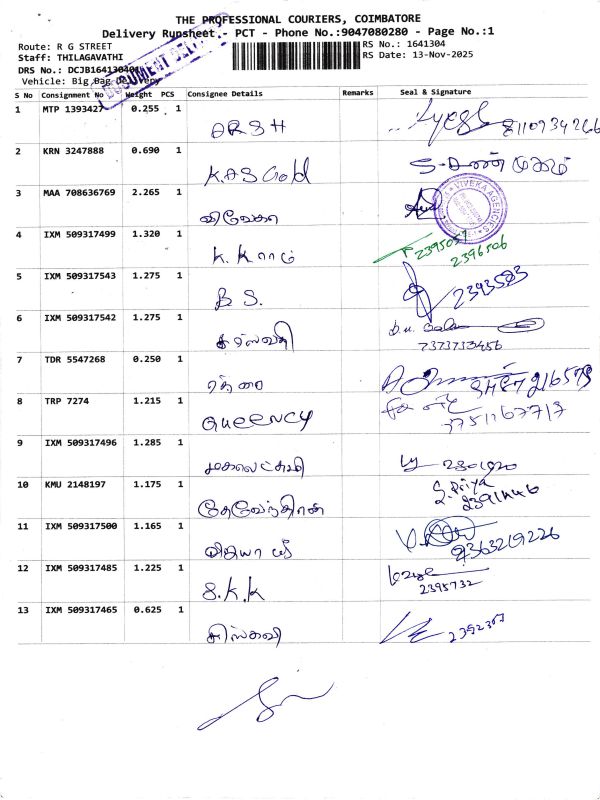 THE PROFESSIONAL COURIERS, COIMBATORE
Delivery Runsheet - PCT - Phone No.:9047080280 - Page No.:1
Route: R G STREET
RS No.: 1641304
Staff: THILAGAVATHI
RS Date: 13-Nov-2025
DRS No.: DCJB164130401
Vehicle: Big Bag Delivery
DOCUMENT DELIVERY
S No Consignment No Weight PCS Consignee Details Remarks Seal & Signature
1 MTP 1393427 0.255 1 ARSH
2 KRN 3247888 0.690 1 K.A.S Gold
3 MAA 708636769 2.265 1 விவேகா VIVEKA AGENCIES
4 IXM 509317499 1.320 1 K. K ராம் 2395057
2396506
5 IXM 509317543 1.275 1 B S. 2393583
6 IXM 509317542 1.275 1 சரஸ்வதி
7373733456
7 TDR 5547268 0.250 1
8 TRP 7274 1.215 1 QUEENCY
9 IXM 509317496 1.285 1 மகாலட்சுமி
10 KMU 2148197 1.175 1 தேவேந்திரன் S. Priya
11 IXM 509317500 1.165 1 விஜயா ஸ்ரீ 2363219226
12 IXM 509317485 1.225 1 S.K.K
2395732
13 IXM 509317465 0.625 1